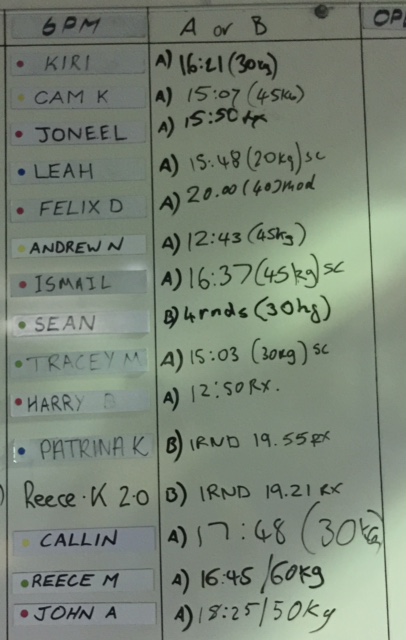 6PM A or B OP
KIRI A) 16:21 (30kg)
CAM K A) 15:07 (45KG)
JONEEL A) 15:50 rx
LEAH A) 15:48 (20kg) SC
FELIX D A) 20.00 (40) mod
ANDREW N A) 12:43 (45kg)
ISMAIL A) 16:37 (45kg) SC
SEAN B) 4 rnds (30kg)
TRACEY M A) 15:03 (30kg) SC
HARRY A) 12:50 RX.
PATRINA K B) 1RND 19.55 RX
Reece.K 2.0 B) 1RND 19.21 RX
CALLIN A) 17:48 (30kg)
REECE M A) 16:45 /60kg
JOHN A A) 18:25/50Kg